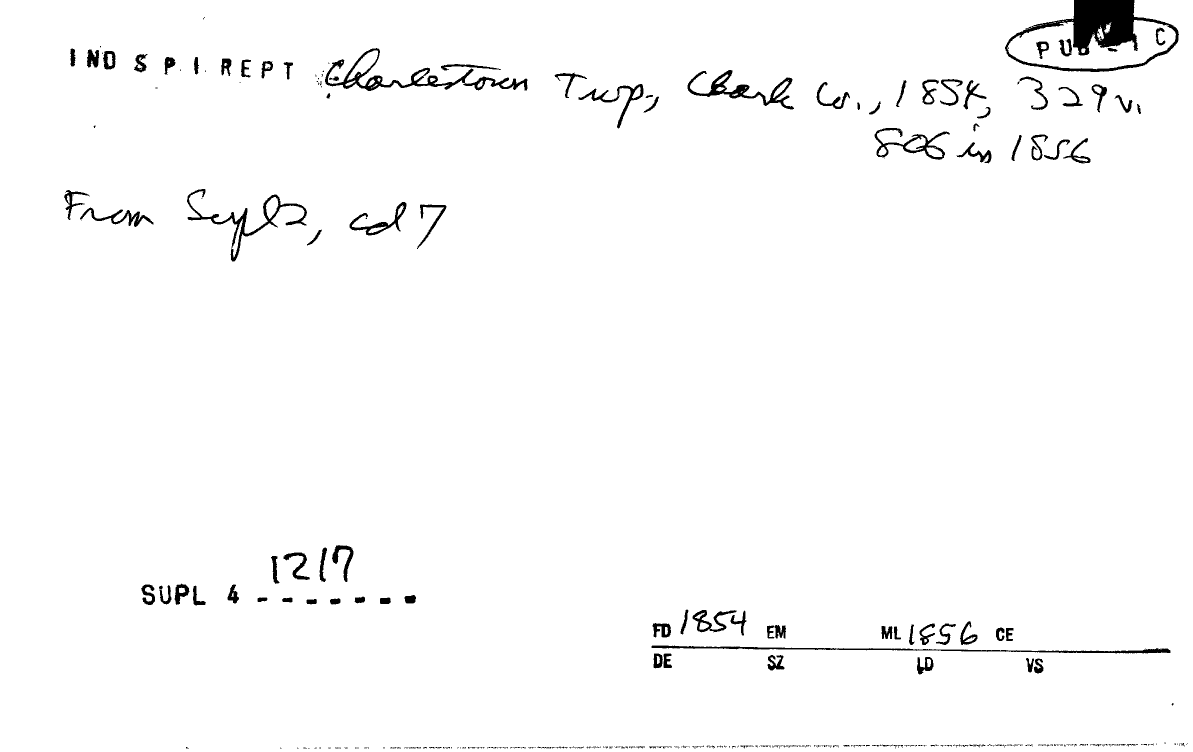 PUB
IND S P I REPT Charlestown Twp., Clark Co., 1854, 329 v.
806 in 1856
From Supl 2, cd 7
1217
SUPL 4 - - - - - - -
FD 1854 EM ML 1856 CE
DE SZ LD VS